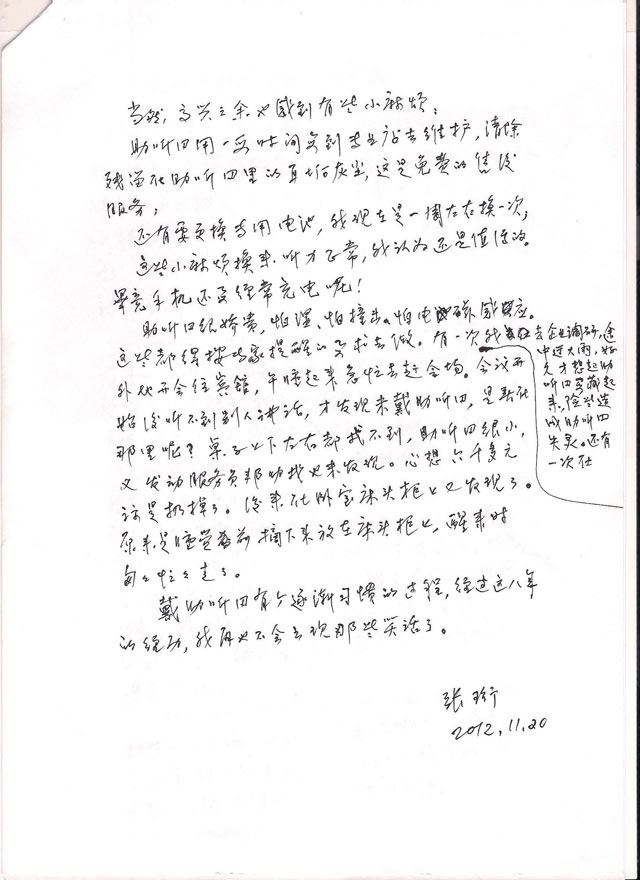 当然，高兴之余也感到有些小麻烦；
助听四用一段时间要到专业店去维护，清除
残留在助听四里的耳垢灰尘，这是免费的售後
服务；
还有要更换专用电池，我现在是一周左右换一次，
这些小麻烦换来听力正常，我认为还是值得的。
毕竟手机还要经常充电呢！
助听四很娇贵，怕湿、怕撞击、怕电磁感应。
这些都得按专家提醒的要求去做。有一次我在去企业调研，途
中遇大雨，
才想起助
听四要藏起
来，险些造
成助听四
失灵。还有
一次在
外地开会住宾馆，午睡起来急忙去赶会场。会议开
始後听不到别人讲话，才发现未戴助听四，是丢在
那里呢？桌子上下左右都找不到，助听四很小，
又发动服务员帮助找也未发现。心想六千多元
该是扔掉了。後来在卧室床头柜上又发现了。
原来是睡觉前摘下来放在床头柜上，醒来时
匆匆忙忙走了。
戴助听四有个逐渐习惯的过程，经过这八年
的经历，我再也不会出现那些笑话了。
张珩
2012.11.20